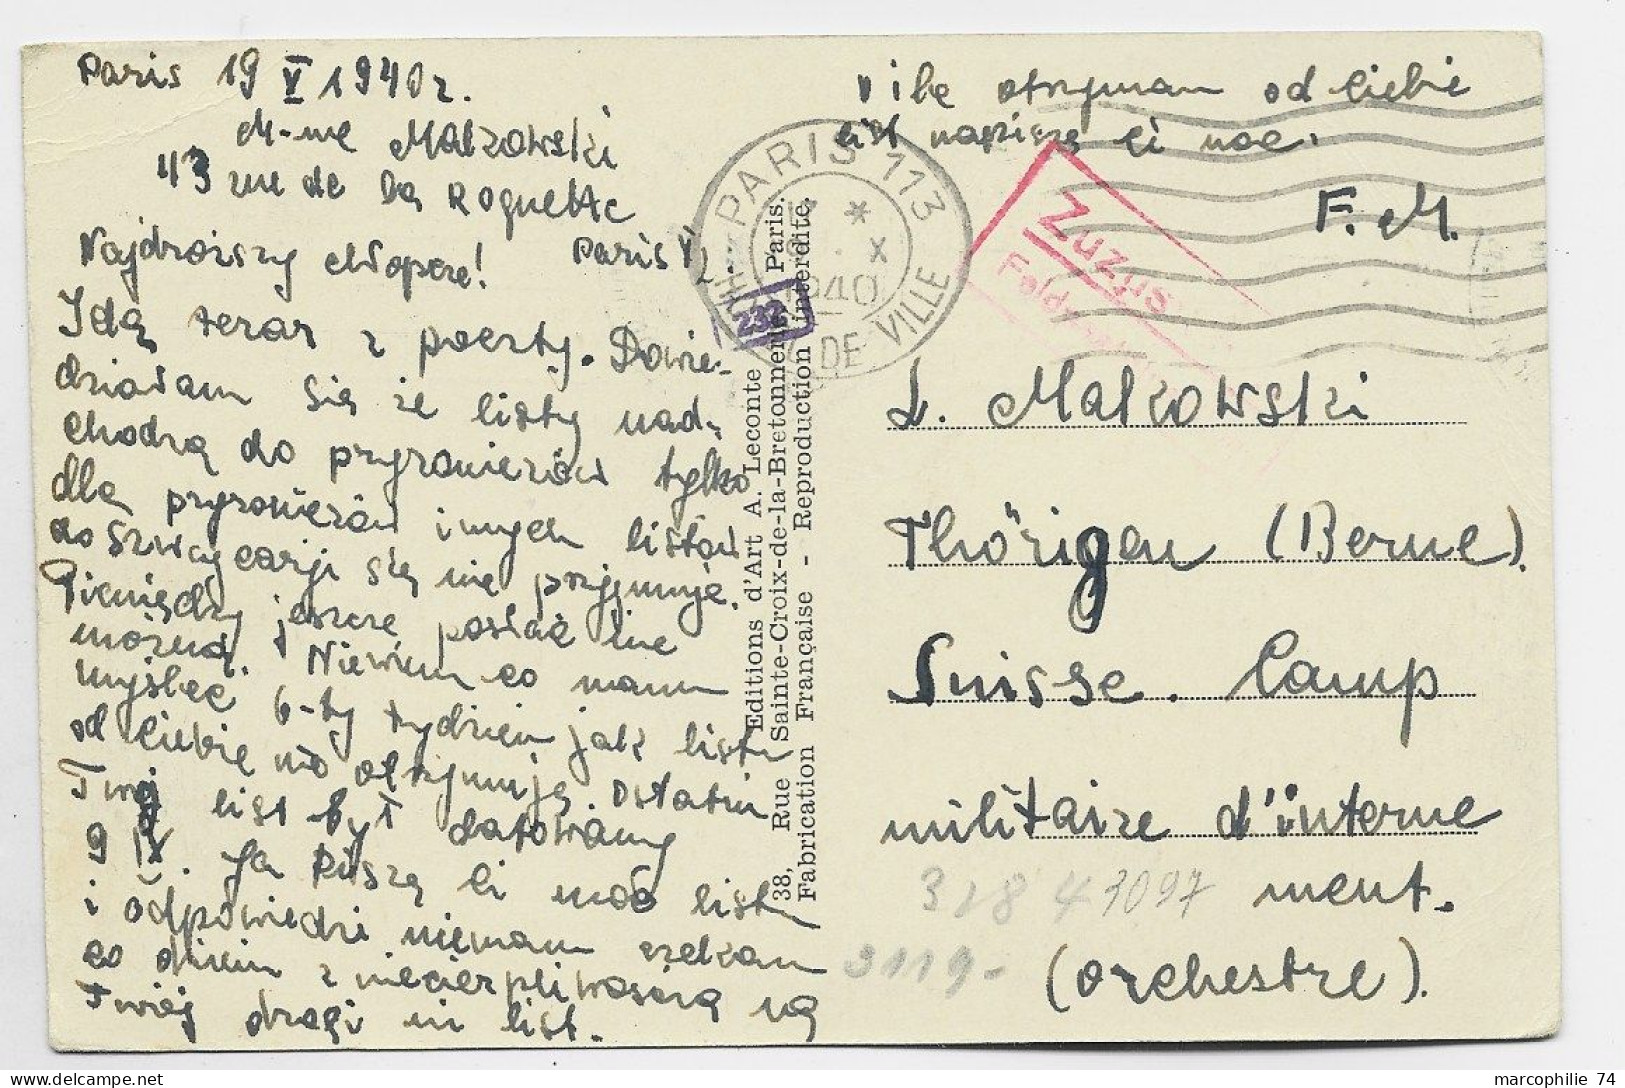 Paris 19 X 1940 r.
M-me Malkowski
43 rue de la Roquette
Paris XI
Najdroższy chłopcze!
Idę teraz z poczty. Dowie-
działam się że listy nad-
chodzą do przyronierów tylko
dla przyronierów innych listów
do Szwajcarji się nie przyjmuje.
Pieniędzy jeszcze posłać nie
można. Niewiem co mam
myśleć 6-ty tydzień jak listu
od Ciebie nie otrzymuję. Ostatni
Twój list był datowany
9 IX. Ja piszę Ci moc listy
i odpowiedzi niemam czekam
co dzień z niecierpliwością na
Twój drogi m list.
otrzymam od Ciebie
list napiszę Ci moc.
F. M.
PARIS 113
HOTEL DE VILLE
X
1940
232
Zurück
Feldpost
Editions d'Art A. Leconte
38, Rue Sainte-Croix-de-la-Bretonnerie Paris.
Fabrication Française - Reproduction interdite.
L. Malkowski
Thörigen (Berne).
Suisse. Camp
militaire d'interne
ment.
(orchestre).
318 4 3097
3119-
marcophilie 74